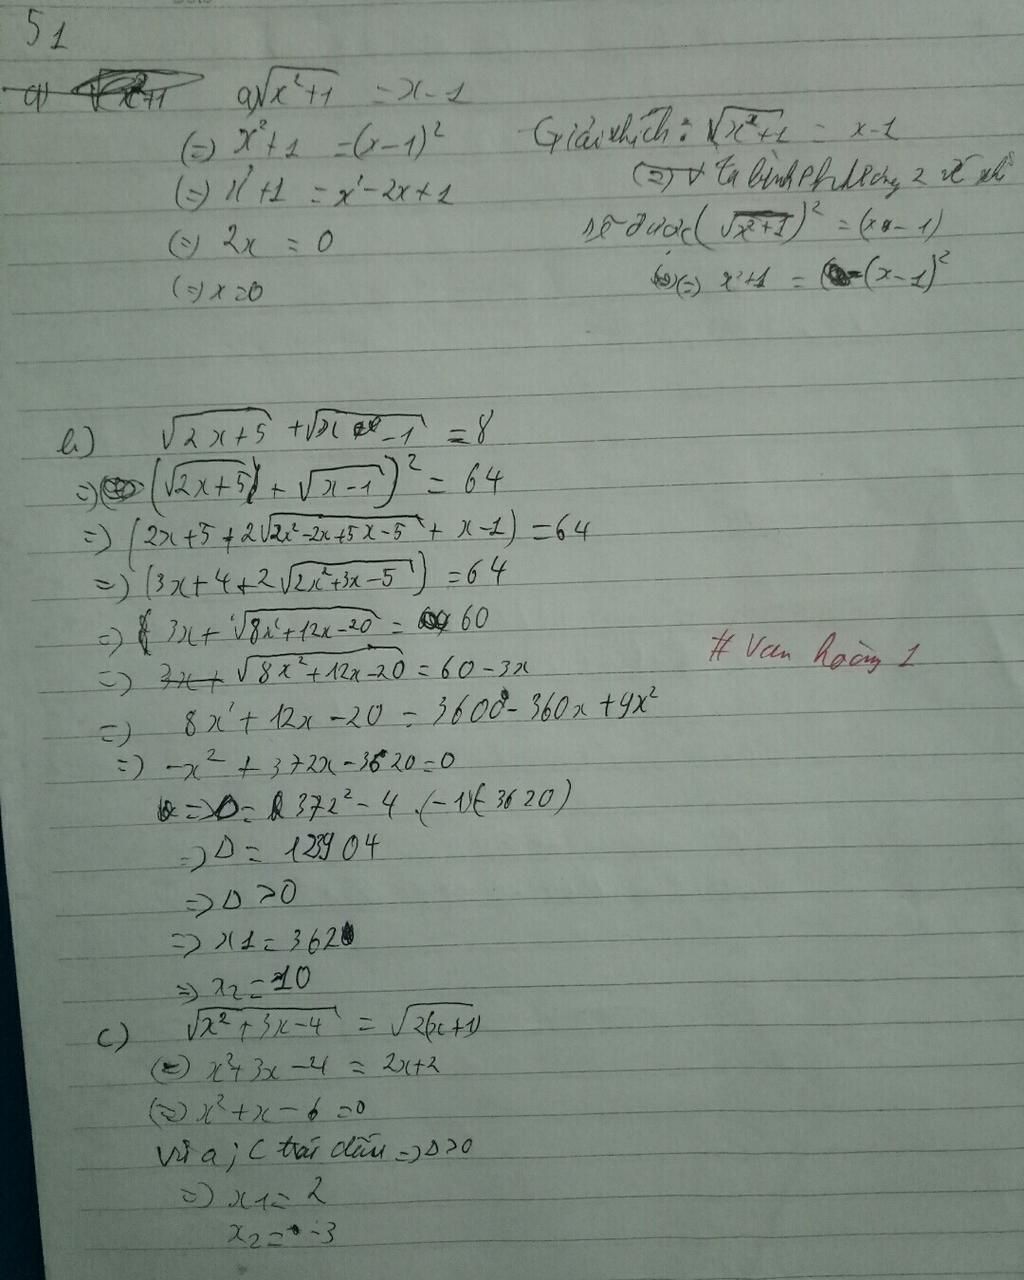 51
a) √x²+1 a) √x²+1 = x-1
(=) x²+1 = (x-1)²
(=) x²+1 = x²-2x+1
(=) 2x = 0
(=) x=0
Giải thích: √x²+1 = x-1
(=) Ta bình phương 2 vế
được (√x²+1)² = (x-1)
(=) x²+1 = (x-1)²
b) √2x+5 + √x-1 = 8
=) (√2x+5 + √x-1)² = 64
=) (2x+5+2√2x²-2x+5x-5 + x-1) = 64
=) (3x+4+2√2x²+3x-5) = 64
=) 3x+√8x²+12x-20 = 60
=) 3x+ √8x²+12x-20 = 60-3x
=) 8x²+12x-20 = 3600-360x+9x²
=) -x²+372x-3620=0
=) Δ= 372²-4.(-1)(-3620)
=) Δ= 123904
=) Δ>0
=) x1=362
=) x2=10
# Van hoàng 1
c) √x²+3x-4 = √2(x+1)
(=) x²+3x-4 = 2x+2
(=) x²+x-6=0
Vì a; c trái dấu =) Δ>0
=) x1= 2
x2= -3